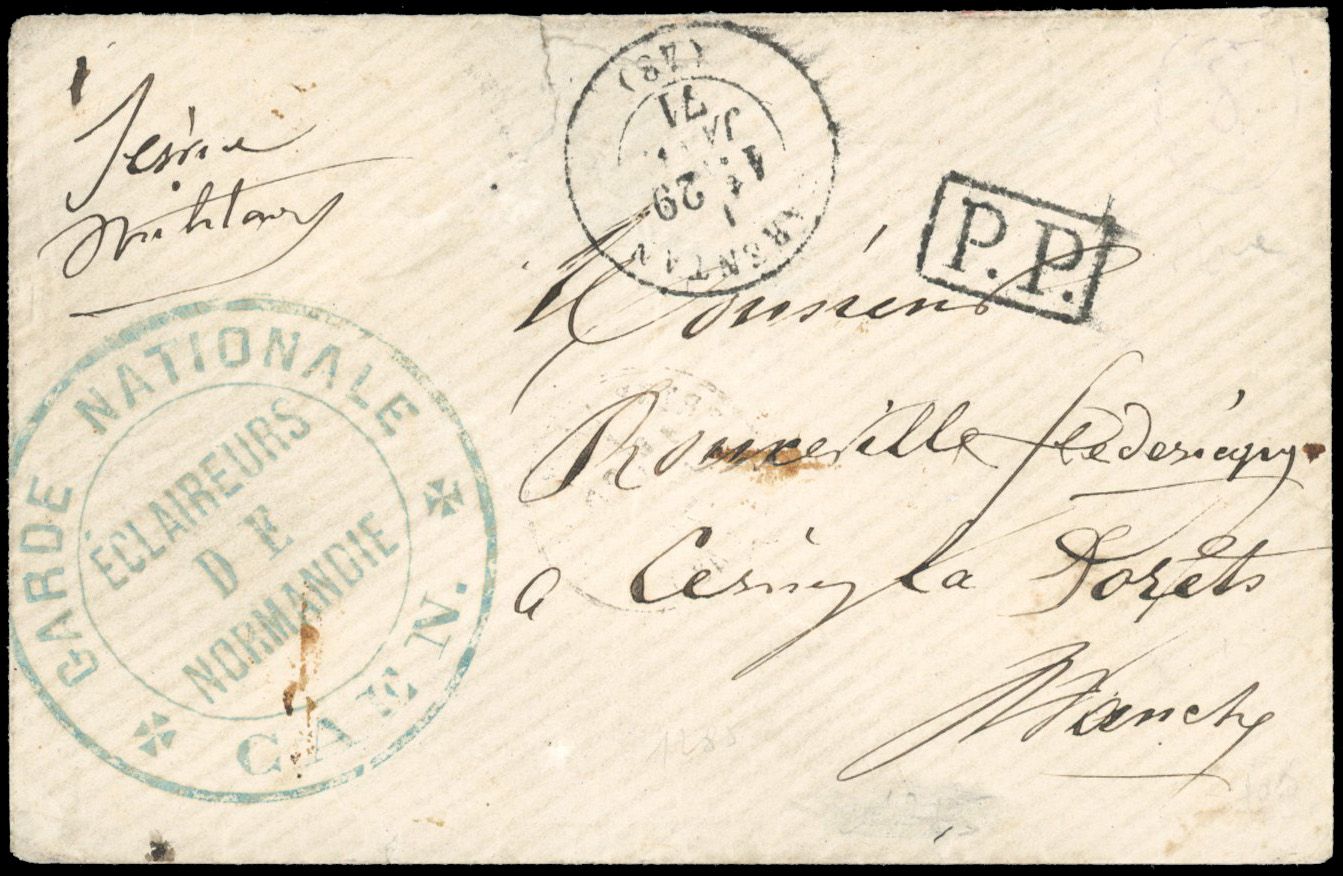 Service
Militaire
CARENTAN
1
29
JANV.
71
(48)
P.P.
Monsieur
Rouxeville
a Cerisy La Forêts
Manche
GARDE NATIONALE
ÉCLAIREURS
DE
NORMANDIE
CAEN.